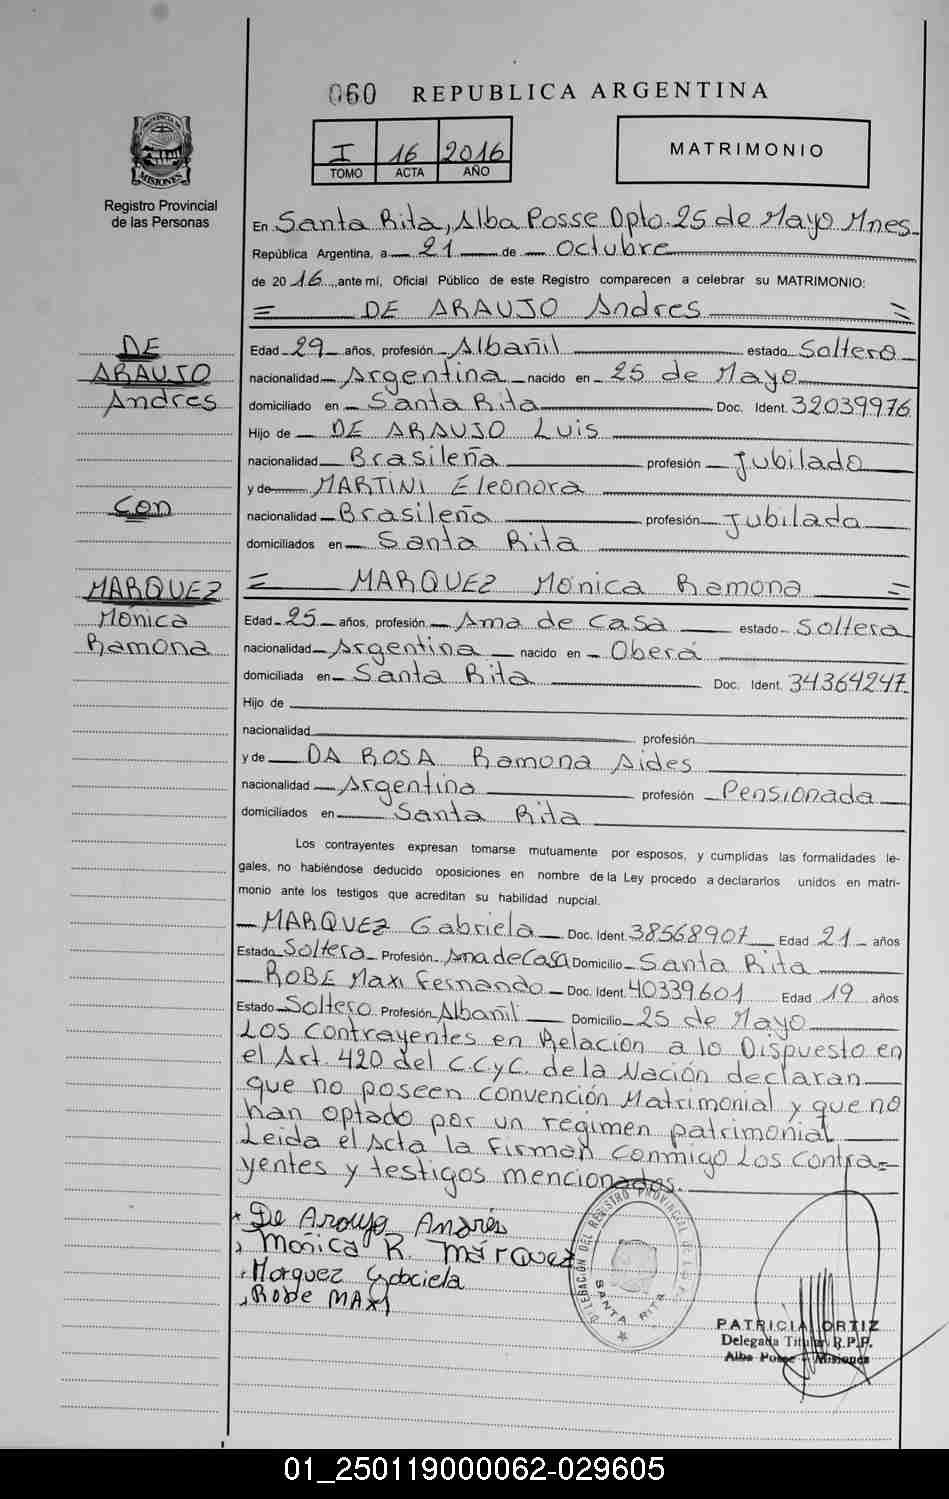 060 REPUBLICA ARGENTINA
I 16 2016
TOMO ACTA AÑO
MATRIMONIO
PROVINCIA DE
MISIONES
Registro Provincial
de las Personas
En Santa Rita, Alba Posse Dpto. 25 de Mayo Mnes
República Argentina, a 21 de Octubre
de 2016, ante mí, Oficial Público de este Registro comparecen a celebrar su MATRIMONIO:
= DE ARAUJO Andres =
DE
ARAUJO
Andres
Con
MARQUEZ
Mónica
Ramona
Edad 29 años, profesión Albañil estado Soltero
nacionalidad Argentina nacido en 25 de Mayo
domiciliado en Santa Rita Doc. Ident. 32039976
Hijo de DE ARAUJO Luis
nacionalidad Brasileña profesión Jubilado
y de MARTINI Eleonora
nacionalidad Brasileña profesión Jubilada
domiciliados en Santa Rita
= MARQUEZ Mónica Ramona =
Edad 25 años, profesión Ama de Casa estado Soltera
nacionalidad Argentina nacido en Oberá
domiciliada en Santa Rita Doc. Ident. 34364247
Hijo de
nacionalidad profesión
y de DA ROSA Ramona Aides
nacionalidad Argentina profesión Pensionada
domiciliados en Santa Rita
Los contrayentes expresan tomarse mutuamente por esposos, y cumplidas las formalidades le-
gales, no habiéndose deducido oposiciones en nombre de la Ley procedo a declararlos unidos en matri-
monio ante los testigos que acreditan su habilidad nupcial.
MARQUEZ Gabriela Doc. Ident. 38568907 Edad 21 años
Estado Soltera Profesión Ama de Casa Domicilio Santa Rita
ROBE Maxi Fernando Doc. Ident. 40339601 Edad 19 años
Estado Soltero Profesión Albañil Domicilio 25 de Mayo
Los Contrayentes en Relación a lo Dispuesto en
el Art. 420 del C.C.y C. de la Nación declaran
que no poseen convención Matrimonial y que no
han optado por un regimen patrimonial
Leida el Acta la Firman conmigo Los Contra-
yentes y testigos mencionados.
De Araujo Andrés
Monica R. Márquez
Marquez Gabriela
Robe MAXI
DELEGACIÓN DEL REGISTRO PROVINCIAL DE LAS
SANTA RITA
PATRICIA ORTIZ
Delegada Titular R.P.P.
Alba Posse - Misiones
01_250119000062-029605